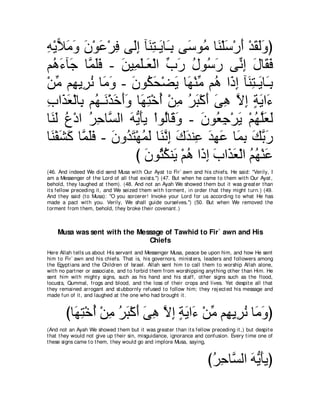 وَلَقَدْ أَرْسَلْنَا مُوسَى بِـَايَـتِنَآ إِلَى فِرْعَوْنَ وَمَلإَيْهِ
فَقَالَ إِنِّى رَسُولُ رَبِّ الْعَـلَمِينَ - فَلَمَّا جَآءَهُم
بِـَايَـتِنَآ إِذَا هُم مِّنْهَا يَضْحَكُونَ - وَمَا نُرِيِهِم مِّنْ
ءَايَةٍ إِلاَّ هِىَ أَكْبَرُ مِنْ أُخْتِهَا وَأَخَذْنَـهُم بِالْعَذَابِ
لَعَلَّهُمْ يَرْجِعُونَ - وَقَالُواْ يأَيُّهَ السَّاحِرُ ادْعُ لَنَا
رَبَّكَ بِمَا عَهِدَ عِندَكَ إِنَّنَا لَمُهْتَدُونَ - فَلَمَّا كَشَفْنَا
عَنْهُمُ الْعَذَابَ إِذَا هُمْ يَنكُثُونَ )
(46. And indeed We did send Musa with Our Ayat to Fir`awn and his chiefs. He said: "Verily, I
am a Messenger of the Lord of all that exists.") (47. But when he came to them with Our Ayat,
behold, they laughed at them). (48. And not an Ayah We showed them but it was greater than
its fellow preceding it, and We seized them with torment, in order that they might turn.) (49.
And they said (to Musa): "O you sorcerer! Invoke your Lord for us according to what He has
made a pact with you. Verily, We shall guide ourselves.") (50. But when We removed the
torment from them, behold, they broke their covenant.)
Musa was sent with the Message of Tawhid to Fir`awn and His
Chiefs
Here Allah tells us about His servant and Messenger Musa, peace be upon him, and how He sent
him to Fir`awn and his chiefs. That is, his governors, ministers, leaders and followers among
the Egyptians and the Children of Israel. Allah sent him to call them to worship Allah alone,
with no partner or associate, and to forbid them from worshipping anything other than Him. He
sent him with mighty signs, such as his hand and his staff, other signs such as the flood,
locusts, Qummal, frogs and blood, and the loss of their crops and lives. Yet despite all that
they remained arrogant and stubbornly refused to follow him; they rejected his message and
made fun of it, and laughed at the one who had brought it.
(وَمَا نُرِيِهِم مِّنْ ءَايَةٍ إِلاَّ هِىَ أَكْبَرُ مِنْ أُخْتِهَا)
(And not an Ayah We showed them but it was greater than its fellow preceding it,) but despite
that they would not give up their sin, misguidance, ignorance and confusion. Every time one of
these signs came to them, they would go and implore Musa, saying,
(يأَيُّهَ السَّاحِرُ)